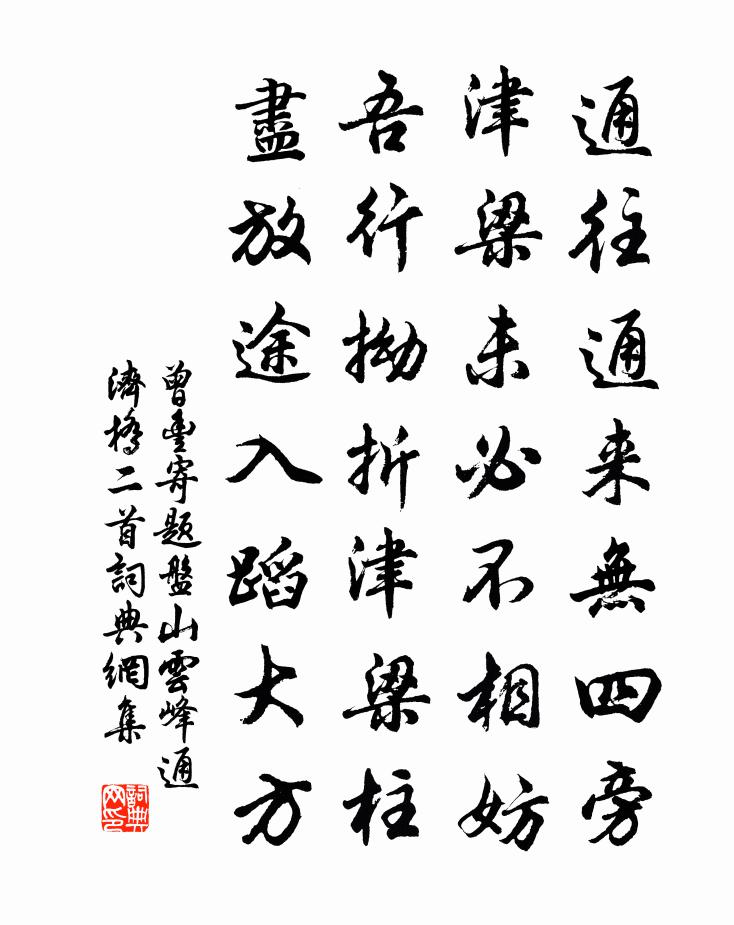 通往通来無四旁
津梁未必不相妨
吾行拗折津梁柱
盡放途入蹈大方
曾豊寄題盤山雲峰通
濟橋二首詞典網集
詞典
网印